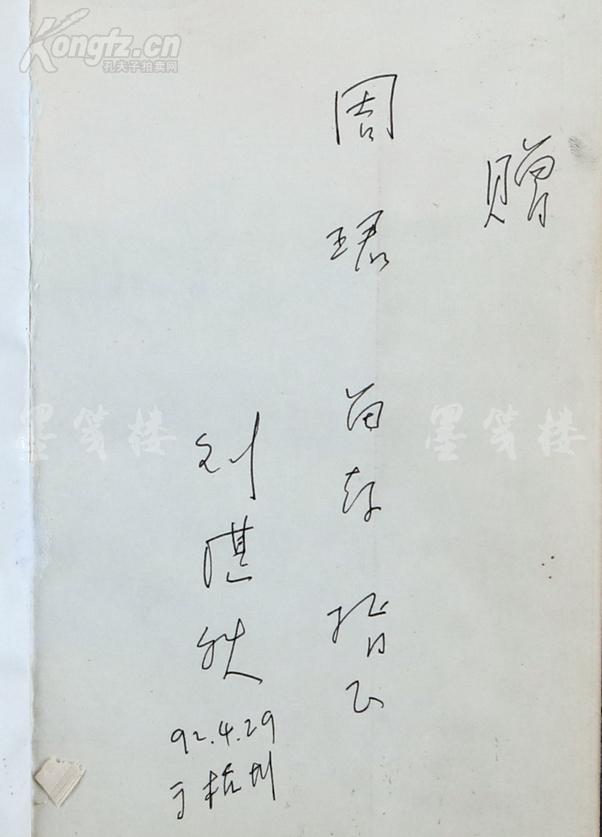 Kongfz.cn
孔夫子拍卖网
赠
周珺 留存 指正
刘湛然
92.4.29
于杭州
墨笺楼
墨笺楼